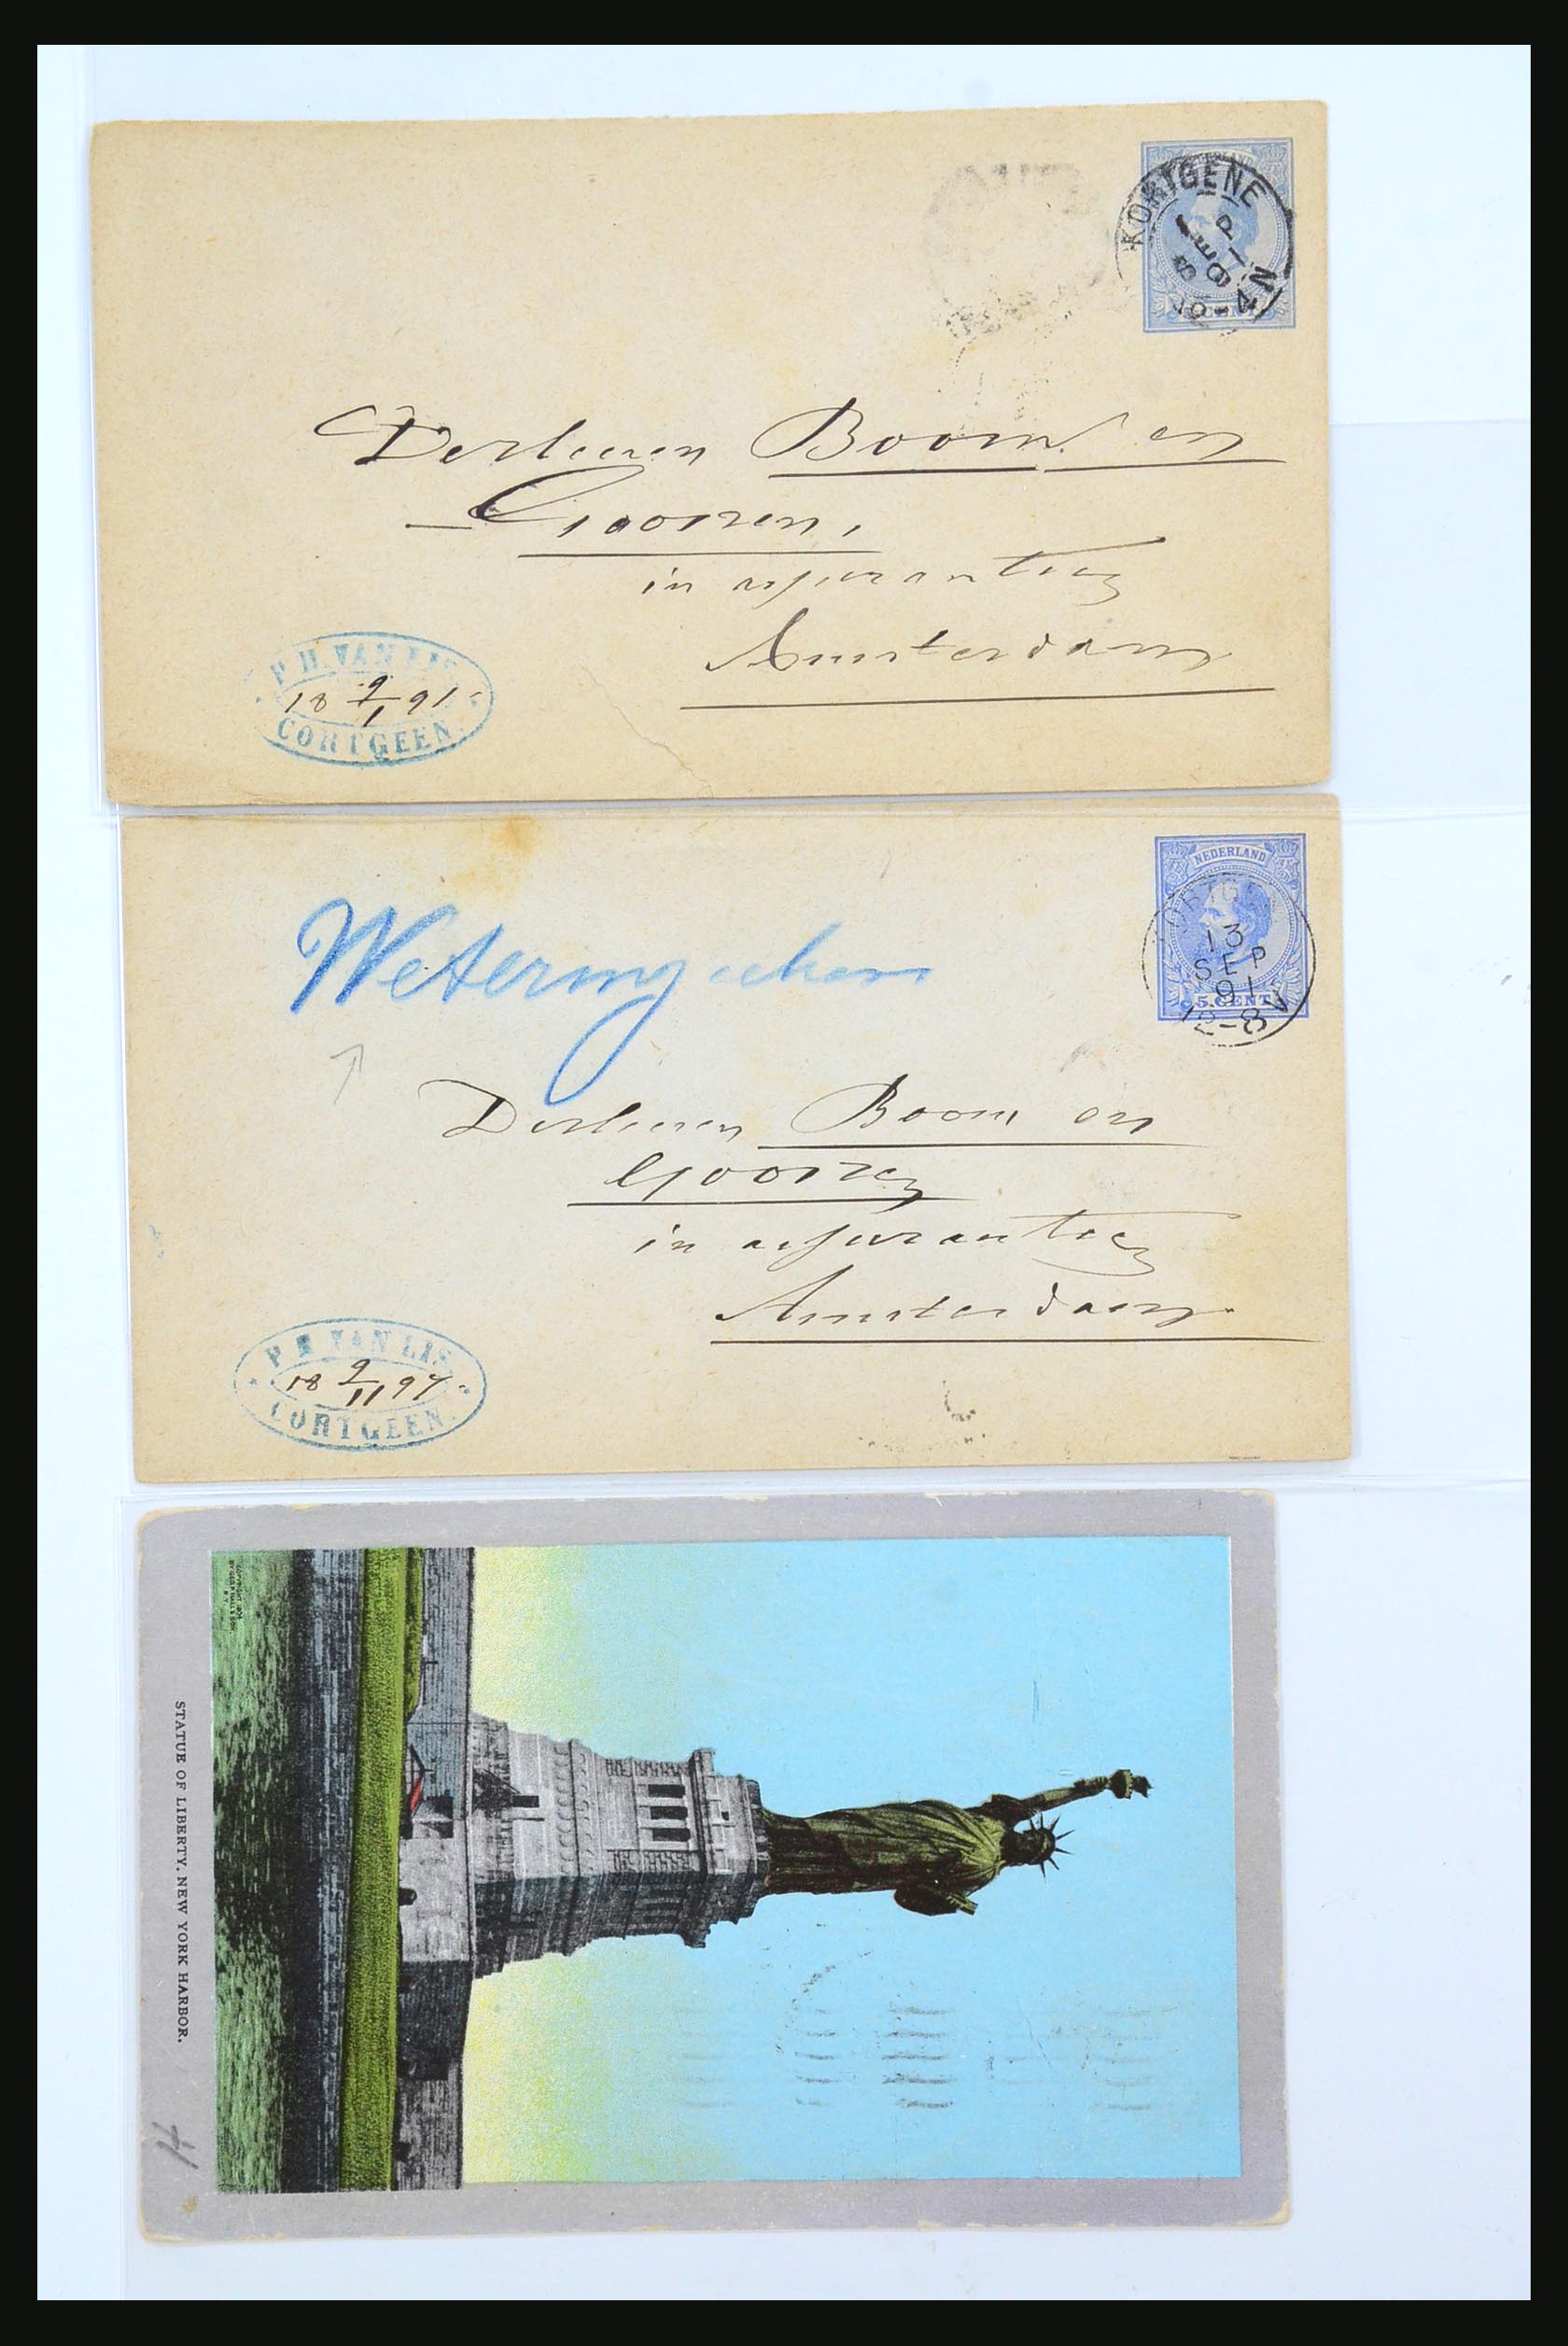 KORTGENE
SEP
91
5 CENT
Derheeren Boom en
Goossen,
in assurantien
Amsterdam
P. H. VAN LIS
18 9/1 91
CORTGEEN.
NEDERLAND
13
SEP
91
12-8V
5 CENT
Weteringschans
Derheeren Boom en
Goossen
in assurantien
Amsterdam
P H VAN LIS
18 9/11 91
CORTGEEN.
STATUE OF LIBERTY. NEW YORK HARBOR.